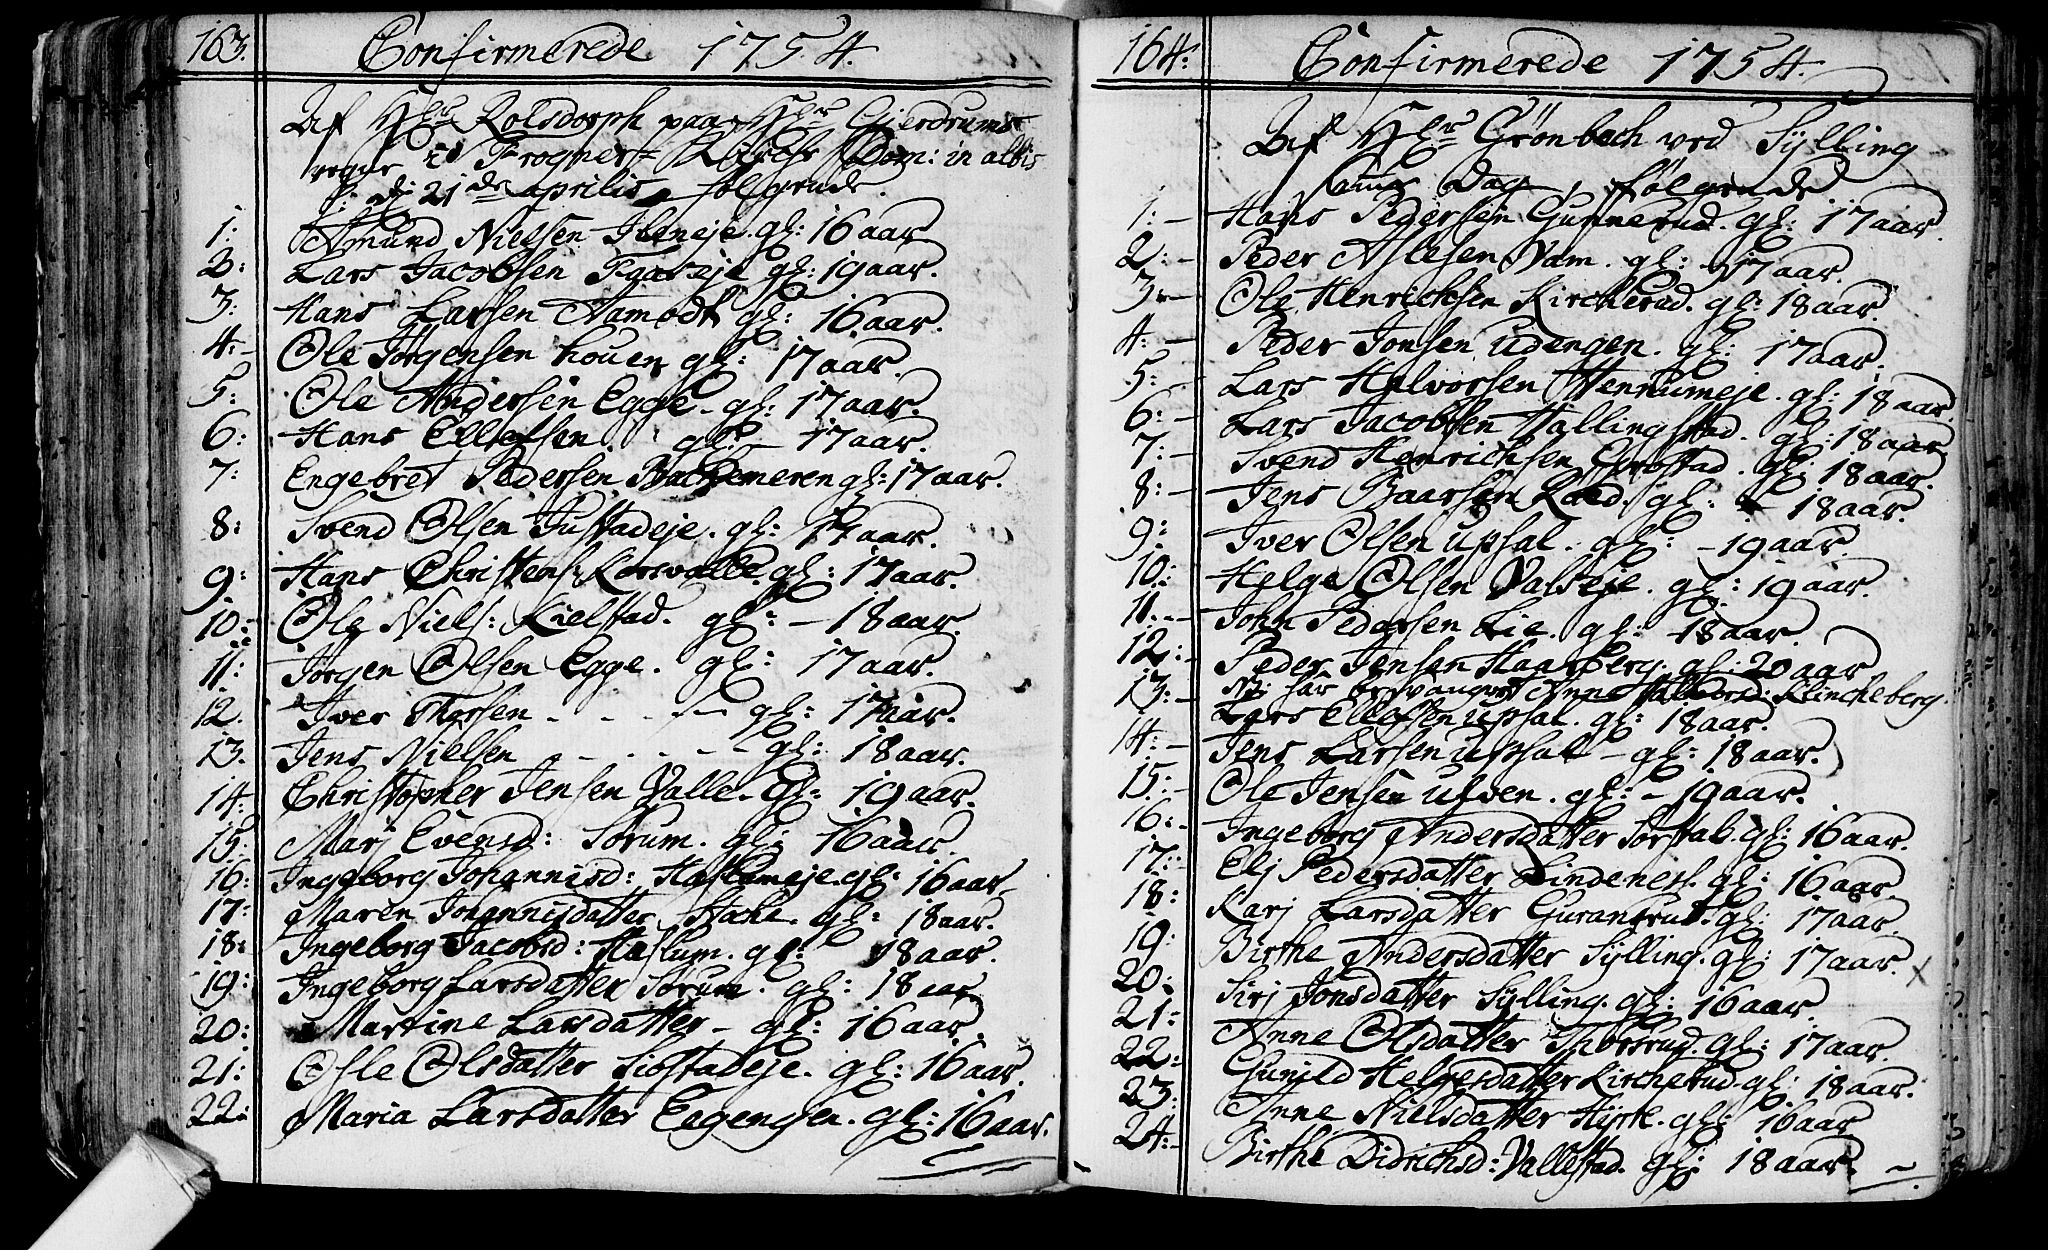 163. Confirmerede 1754.
Af Hr. Rolsdorph paa Hr. Gierdrums
vegne i Frogner Kirche Dom: in albis
d: 21de aprilis følgende.
1: Amund Nielsen Ileneje. gl: 16 aar
2: Lars Jacobsen Faaseje gl: 19 aar.
3: Hans Larsen Aamodt gl: 16 aar.
4: Ole Jørgensen houen gl: 17 aar.
5: Ole Andersen Egge. gl: 17 aar.
6: Hans Ellefsen. gl: 17 aar.
7: Engebret Pedersen Bachemeren gl: 17 aar.
8: Svend Olsen Justadeje. gl: 17 aar.
9: Hans Christens: Korsvalle. gl: 17 aar.
10: Ole Niels: Kielstad. gl: - 18 aar.
11: Jørgen Olsen Egge. gl: 17 aar.
12. Iver Thorsen - - - gl: 17 aar.
13. Jens Nielsen - - - gl: 18 aar.
14: Christopher Jensen Valle. gl: 19 aar.
15: Marj Evensd: Sørum. gl: 16 aar.
16: Ingeborg Johannisd: Haslumeje. gl: 16 aar.
17: Maren Johannisdatter Stache. gl: 18 aar.
18: Ingeborg Jacobsd: Haslum. gl: 18 aar.
19: Ingeborg Larsdatter Sørum. gl: 18 aar.
20: Martine Larsdatter - gl: 16 aar.
21: Osle Olsdatter Siøstadeje. gl: 16 aar.
22: Maria Larsdatter Eegengen. gl: 16 aar.
164: Confirmerede 1754.
Af Hr. Grönbech ved Sylling
samme Dag, følgende
1: - Hans Pedersen Gunnerud. gl: 17 aar.
2: - Peder Aslesen Vam. gl: 17 aar.
3 - Ole Henrichsen Kircherud. gl: 18 aar.
4: - Peder Jonsen udengen. gl: 17 aar.
5: - Lars Halvorsen Hennumeje. gl: 18 aar.
6: - Lars Jacobsen Hallingstad. gl: 18 aar.
7: - Svend Henrichsen Enrostad. gl: 18 aar.
8: - Jens Baarsen Roed. gl: 18 aar.
9: Iver Olsen upsal. gl: - 19 aar.
10: Helge Olsen Valseje. gl: 19 aar.
11. - John Pedersen Lie. gl: 18 aar.
12: - Peder Jensen Haarberg. gl: 20 aar
NB: har besvangret Anne Klincheberg.
13: - Lars Ellefsen upsal. gl: 18 aar.
14: - Jens Larsen upsal - gl: 18 aar.
15: - Ole Jensen ulven. gl: - 19 aar.
16: - Ingeborg Andersdatter Sørsdal. gl: 16 aar.
17: Elj Pedersdatter Lindenes. gl: 16 aar
18: Karj Larsdatter Guranrud. gl: 17 aar.
19: Birthe Andersdatter Sylling. gl: 17 aar. x
20: Sirj Jonsdatter Sylling. gl: 16 aar.
21: Anne Olsdatter Thorsrud. gl: 17 aar.
22: Gunild Helgesdatter Kircherud. gl: 18 aar.
23. Anne Nielsdatter Hyrte. gl: 16 aar
24: - Birthe Didrichsd: Vallestad. gl: 18 aar.